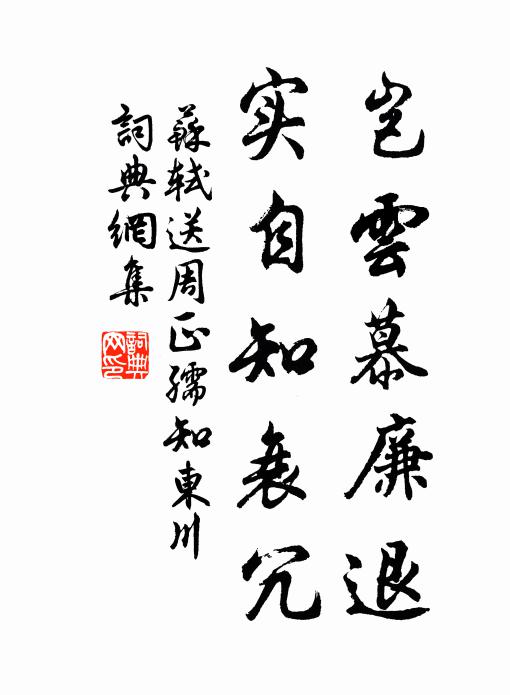 岂雲慕廉退
实自知衰冗
蘇軾送周正孺知東川
詞典網集
詞典网印